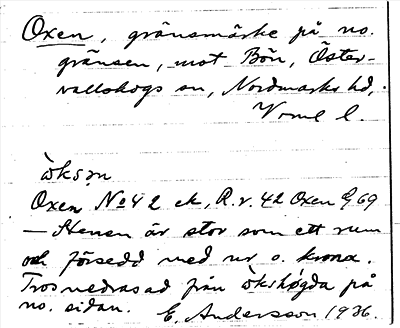 Oxen, gränsmärke på no.
gränsen, mot Bön, Öster-
vallskogs sn, Nordmarks hd,
Vrml l.
òksən
Oxen No 42 ek, R.r. 42 Oxen E, 69
— Stenen är stor som ett rum
och försedd med nr o. krona.
Tros nedrasad från òkshøgda på
no. sidan. E. Andersson 1936.